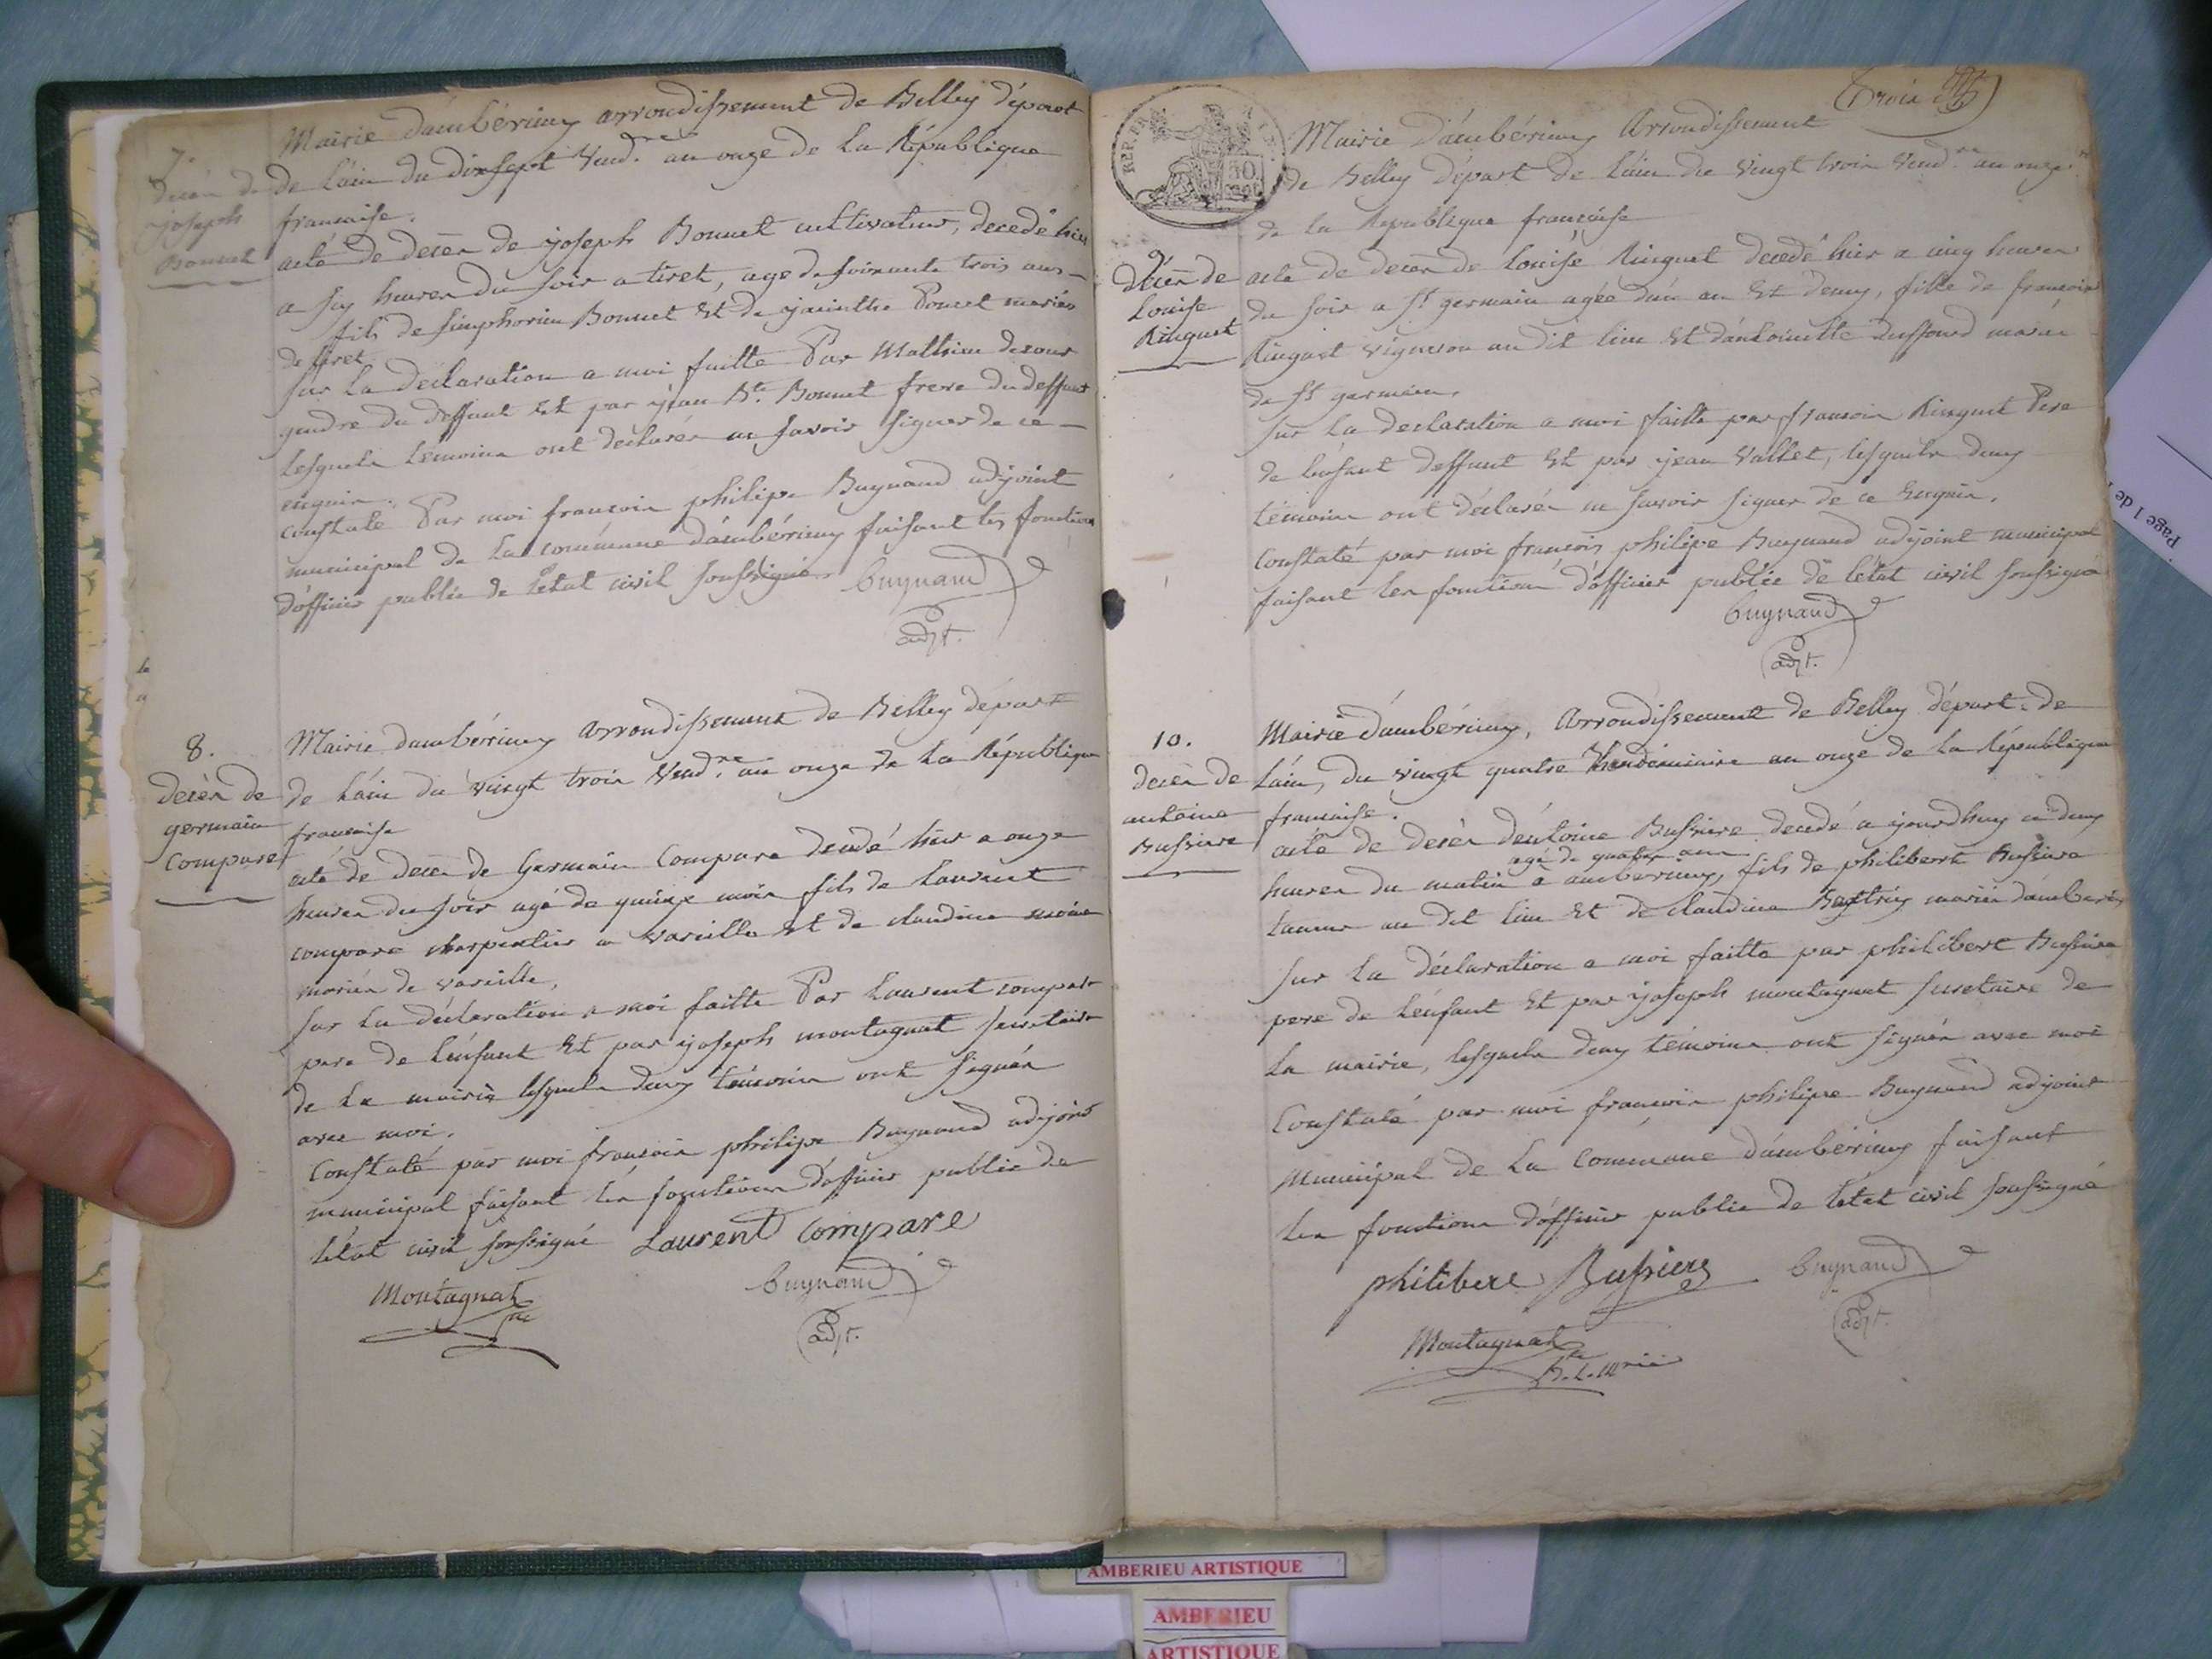 7.
decèn de
joseph
Bonnet
Mairie d'ambérieux arrondissement de Belley départ
de l'ain du dixsept Vend.re an onze de La République
francaise.
acte de decèn de joseph Bonnet cultivateur, decedé hier
a six heures du soir a tiret, age de soixante trois ans
fils de simphorien Bonnet Et de jacinthe Poncet mariés
de tiret
sur La declaration a moi faitte Par Mathieu
gendre du deffunt Et par jean Bte. Bonnet frere du deffunt
lesquels temoins ont declarés ne savoir signer de ce
enquis.
Constaté Par moi francois philipe Buynand adjoint
municipal de La commune d'ambérieux faisant les fonctions
d'officier public de l'état civil soussigné Buynand
adjt.
8.
decèn de
germain
Compare
Mairie d'ambérieux arrondissement de Belley départ
de L'ain du vingt trois Vend.re an onze de La République
francaise
acte de decen de Germain Compare decedé hier a onze
heures du soir agé de quinze mois fils de Laurent
compare charpentier a Vareille Et de claudine moine
mariés de vareille,
sur La déclaration a moi faitte Par Laurent compare
pere de L'enfant Et par joseph montagnat secretaire
de La mairie lesquels deux témoins ont signés
avec moi.
Constaté par moi francois philipe Buynand adjoint
municipal faisant les fonctions d'officier public de
l'état civil soussigné Laurent Compare
Montagnat Buynand
sre adjt.
Trois
REP. FRA.
50
Mairie d'ambérieux Arrondissement
de Belley départ de L'ain du vingt trois Vend.re an onze
de La République francaise
9.
décèn de
Louise
Ringuet
acte de decen de Louise Ringuet decedé hier a cinq heures
du soir a St. germain agée d'un an Et demy, fille de francois
Ringuet vigneron au dit lieu Et d'antoinette dufsourd mariés
de St germain.
sur La declaration a moi faitte par francois Ringuet Pere
de l'enfant deffunt Et par jean Vallet, lesquels deux
témoins ont déclarés ne savoir signer de ce Enquis.
Constaté par moi francois philipe Buynand adjoint municipal
faisant les fonctions d'officier public de l'état civil soussigné
Buynand
adjt.
10.
decèn de
antoine
Bussiere
Mairie d'ambérieux, Arrondissement de Belley départ. de
L'ain, du vingt quatre Vendemiaire an onze de La République
francaise.
acte de decèn d'entoine Bussiere decedé a jourdhuy a deux
agé de quatre ans
heures du matin a ambérieux, fils de philibert Bussiere
tanneur au dit lieu Et de claudine mariés d'ambérieux
Sur La déclaration a moi faitte par philibert Bussiere
pere de L'enfant Et par joseph montagnat secretaire de
La mairie, lesquels deux témoins ont signés avec moi
Constaté par moi francois philipe Buynand adjoint
Municipal de La Commune d'ambérieux faisant
Les fonctions d'officier public de l'état civil soussigné
philibere Bussiere Buynand
adjt.
Montagnat
Page 1 de
AMBERIEU ARTISTIQUE
AMBERIEU
ARTISTIQUE